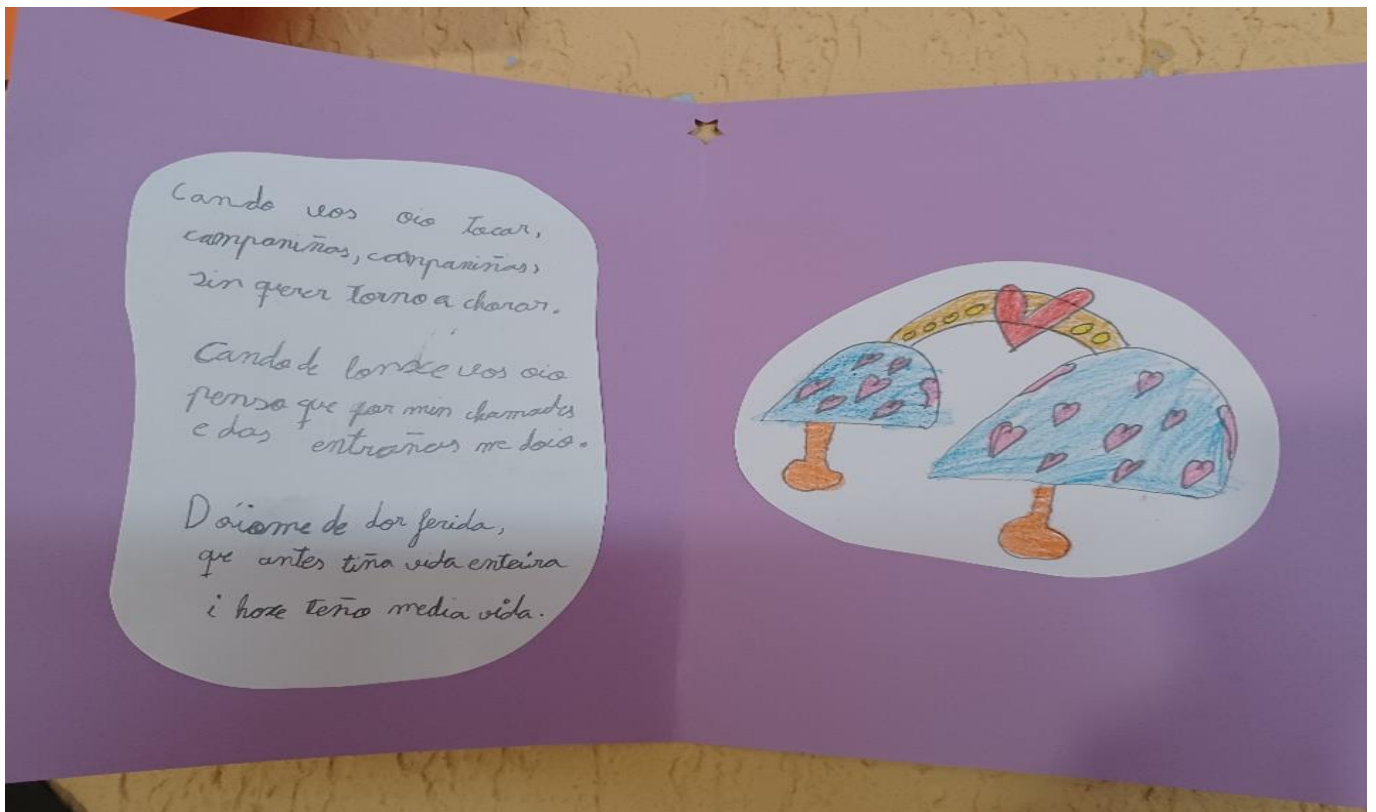 Cando vos oio tocar,
campaniñas, campaniñas,
sin querer torno a chorar.
Cando de lonxe vos oio
penso que por min chamades
e das entrañas me doio.
Dóiome de dor ferida,
que antes tiña vida enteira
i hoxe teño media vida.